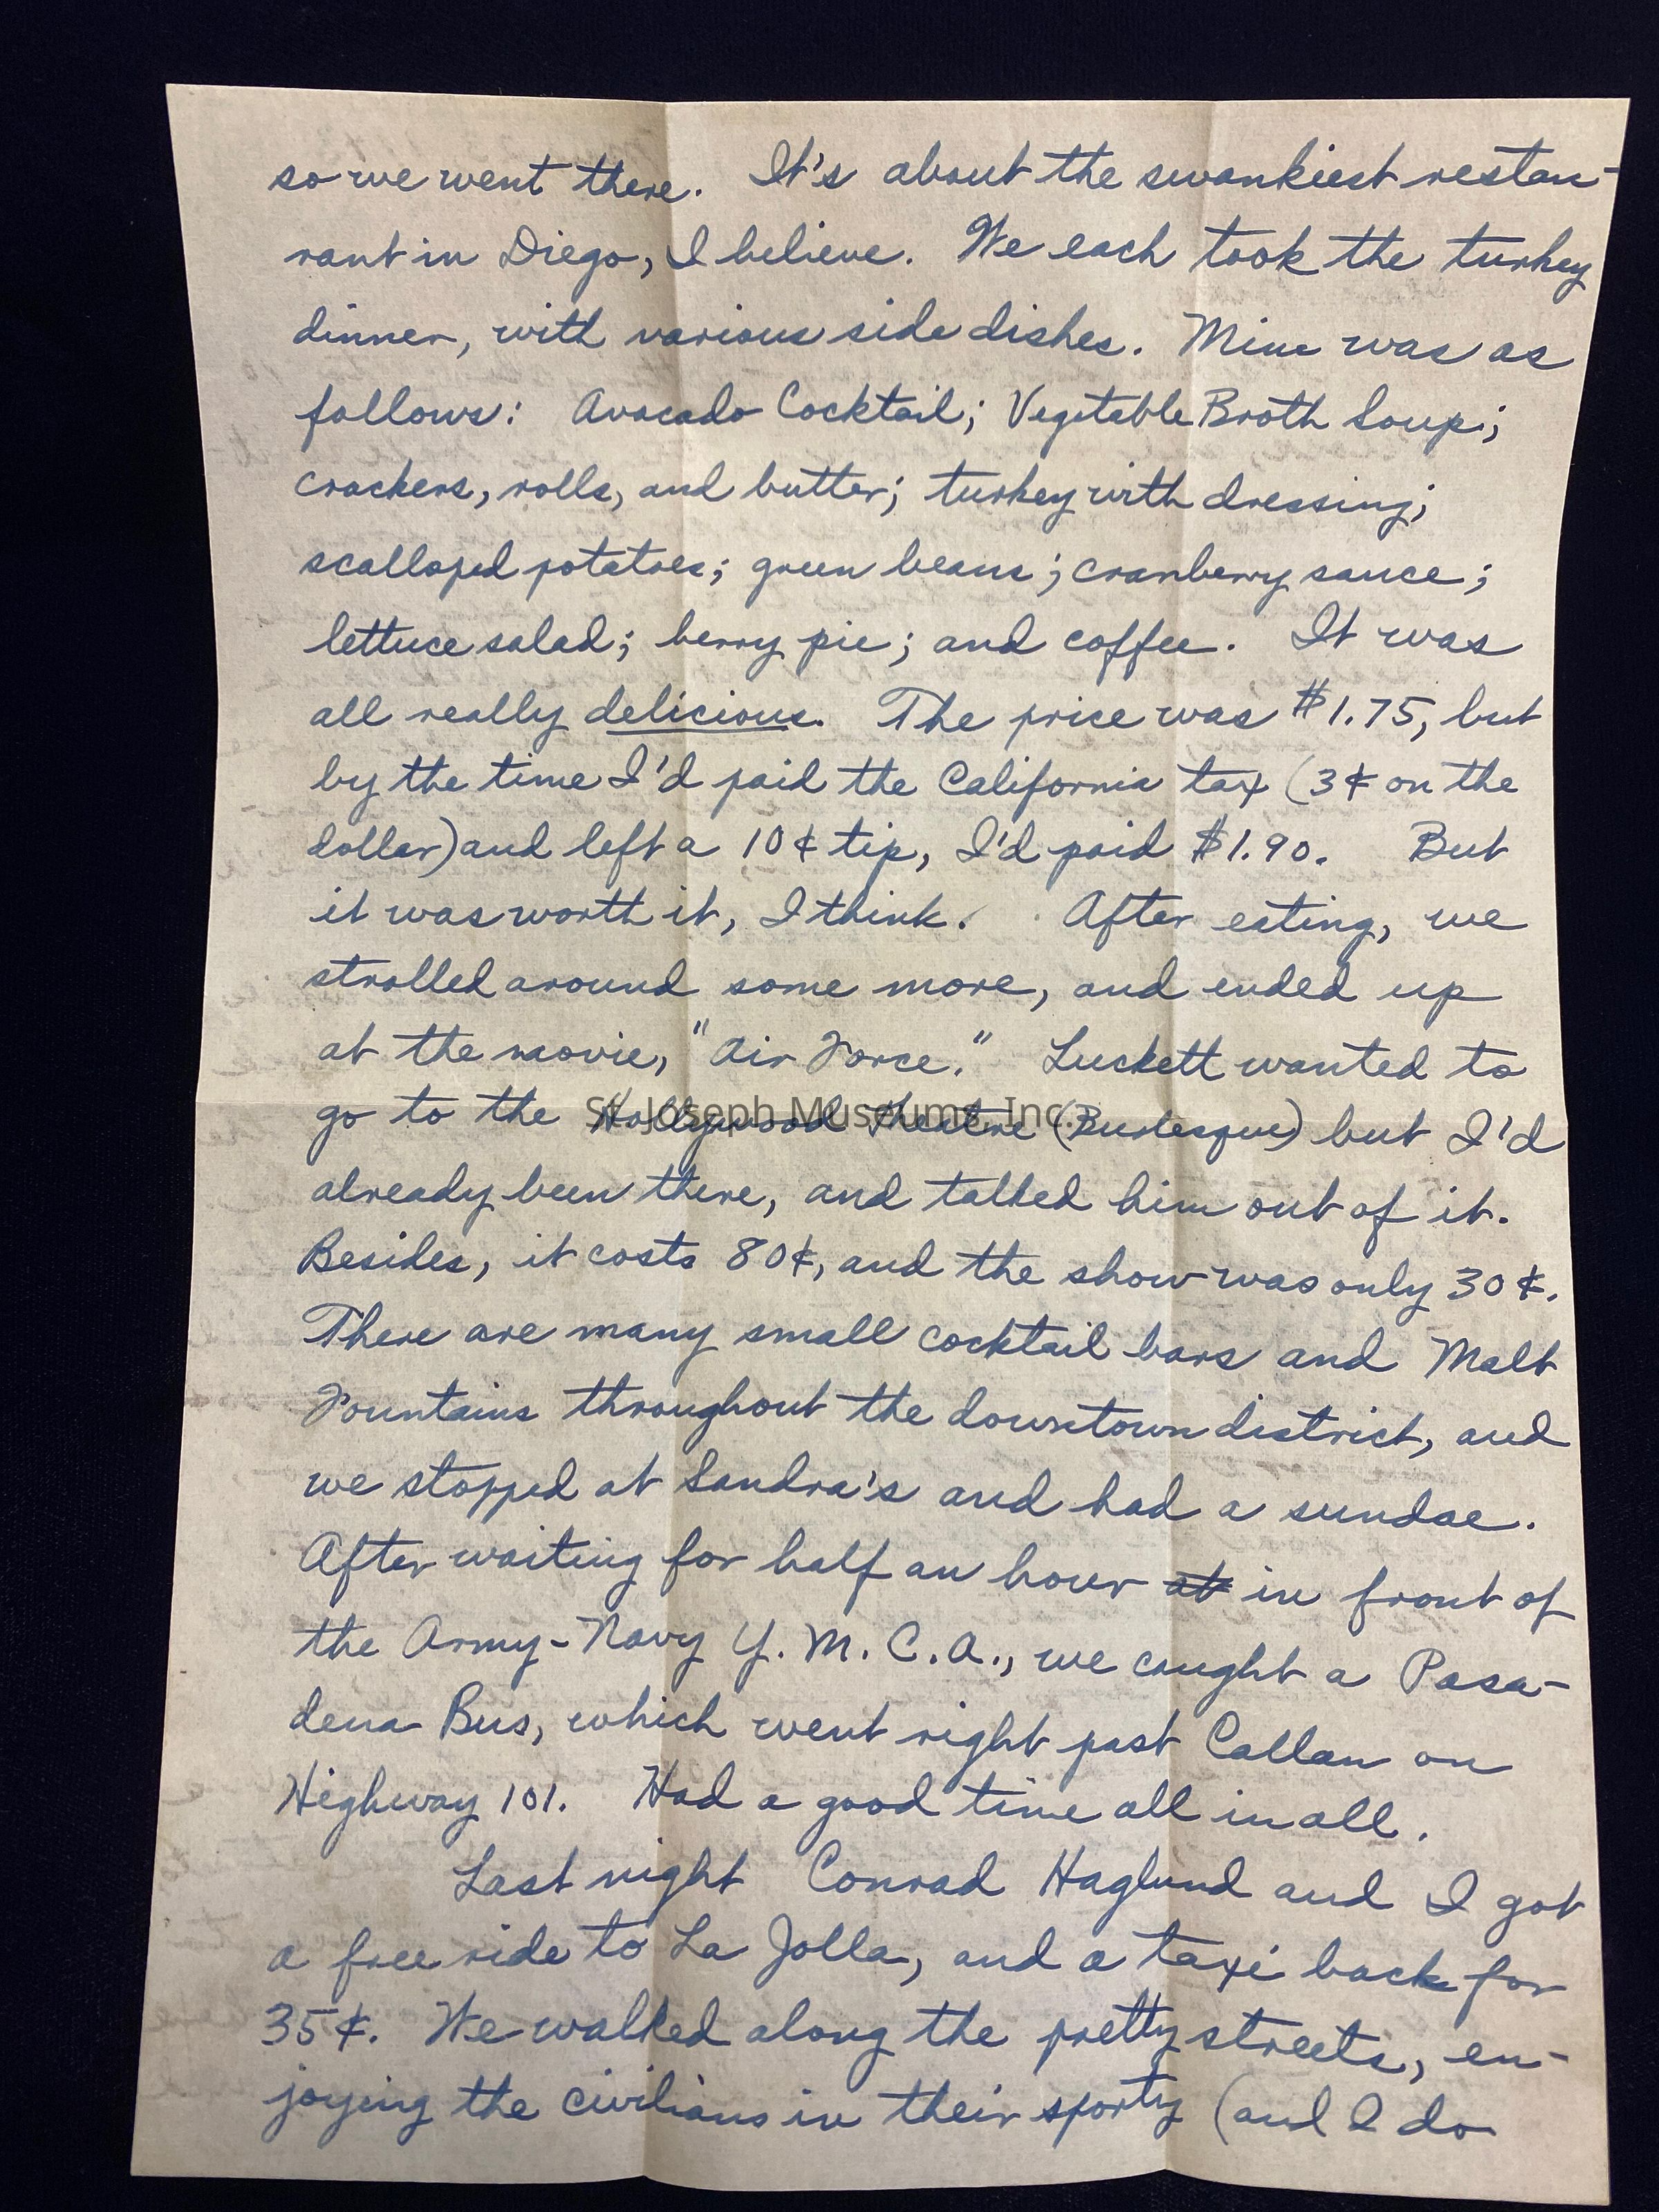 so we went there. It's about the swankiest restau-
rant in Diego, I believe. We each took the turkey
dinner, with various side dishes. Mine was as
follows: Avocado Cocktail; Vegetable Broth Soup;
crackers, rolls, and butter; turkey with dressing;
scalloped potatoes; green beans; cranberry sauce;
lettuce salad; berry pie; and coffee. It was
all really delicious. The price was $1.75, but
by the time I'd paid the California tax (3¢ on the
dollar) and left a 10¢ tip, I'd paid $1.90. But
it was worth it, I think. After eating, we
strolled around some more, and ended up
at the movie, "Air Force." Luckett wanted to
go to the Hollywood Theatre (Burlesque) but I'd
St. Joseph Museums, Inc.
already been there, and talked him out of it.
Besides, it costs 80¢, and the show was only 30¢.
There are many small cocktail bars and Malt
Fountains throughout the downtown district, and
we stopped at Sandra's and had a sundae.
After waiting for half an hour at in front of
the Army-Navy Y.M.C.A., we caught a Pasa-
dena Bus, which went right past Callan on
Highway 101. Had a good time all in all.
Last night Conrad Haglund and I got
a free ride to La Jolla, and a taxi back for
35¢. We walked along the pretty streets, en-
joying the civilians in their sporty (and I do